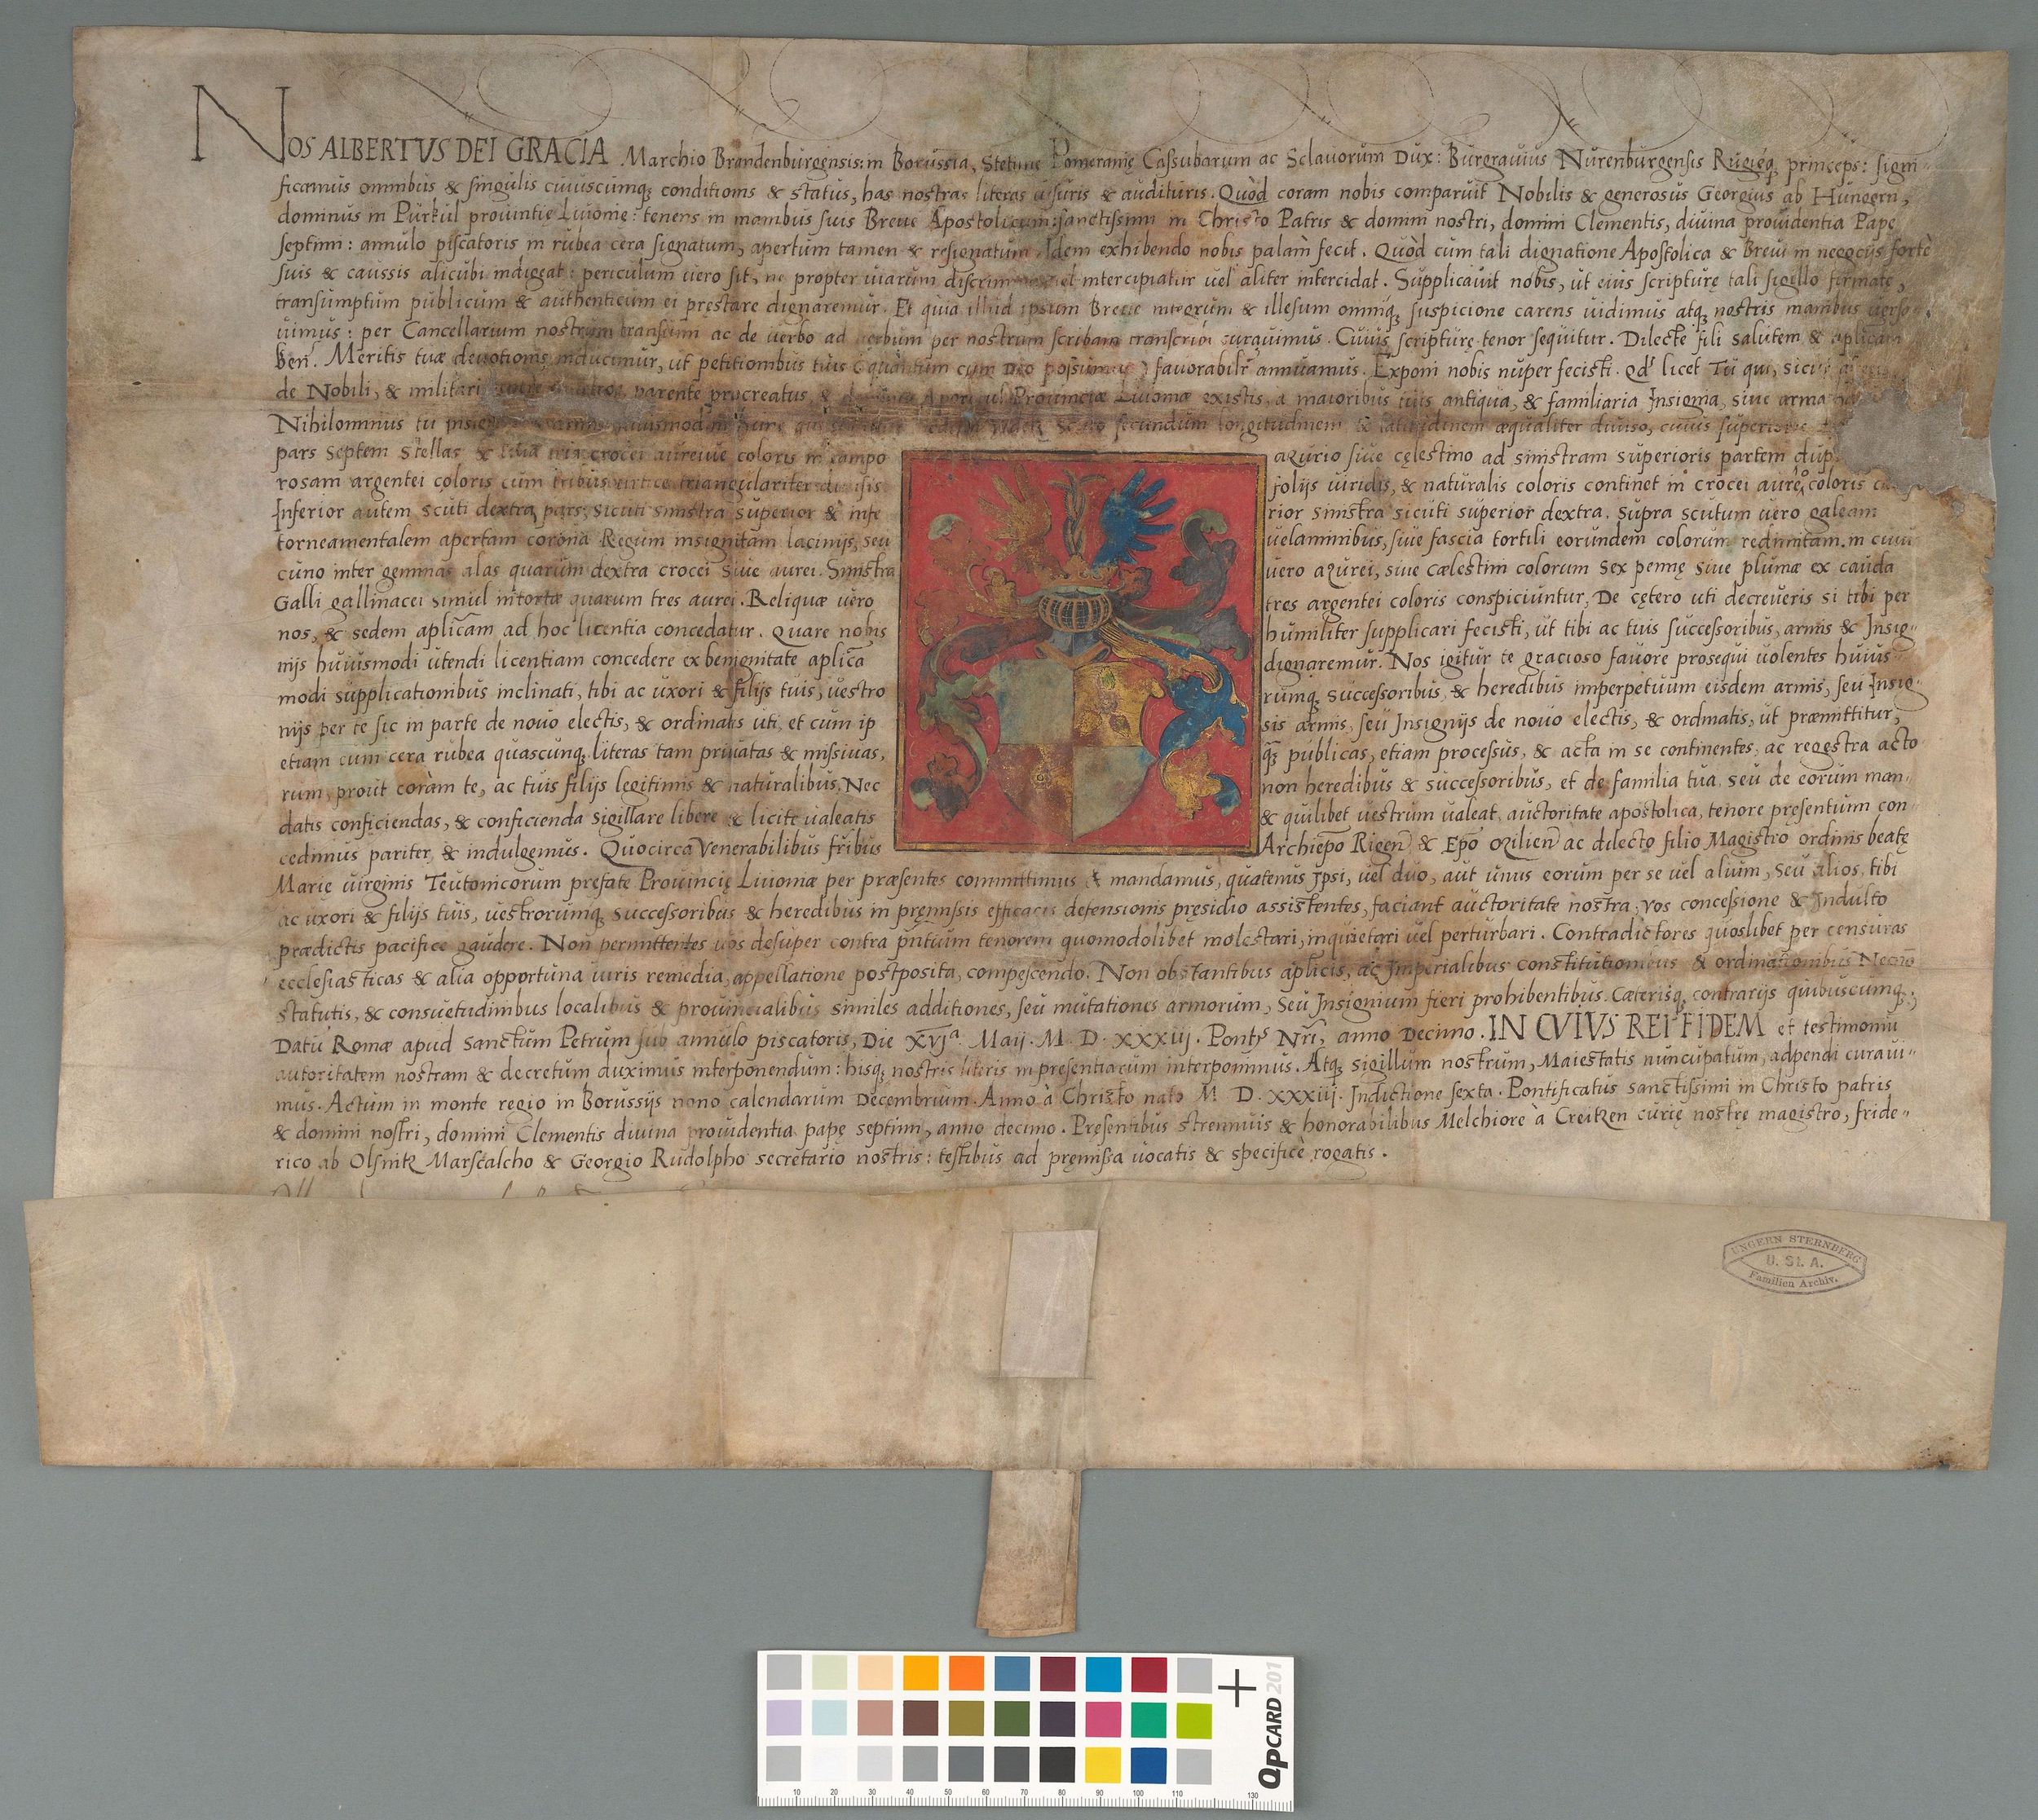 NOS ALBERTVS DEI GRACIA Marchio Brandenburgensis: in Borussia, Stetinę Pomeranię Cassubarum ac Sclauorum Dux: Burgrauius Nurenburgensis Rugięq princeps: signi-
ficamus omnibus & singulis cuiuscumq conditionis & status, has nostras literas uisuris & audituris. Quòd coram nobis comparuit Nobilis & generosus Georgius ab Hungern,
dominus in Pürkül prouintię Liuonię: tenens in manibus suis Breue Apostolicum: sanctissimi in Christo Patris & domini nostri, domini Clementis, diuina prouidentia Papę
septimi: annulo piscatoris in rubea cera signatum, apertum tamen & resignatum. Idem exhibendo nobis palàm fecit. Quòd cum tali dignatione Apostolica & Breui in negocijs fortè
suis & caussis alicubi indigeat: periculum uero sit, ne propter uiarum discrimina uel intercipiatur uel aliter intercidat. Supplicauit nobis, ut eius scripturę tali sigillo firmatę,
transumptum publicum & authenticum ei pręstare dignaremur. Et quia illud ipsum Breue integrum & illesum omniq suspicione carens uidimus atq nostris manibus uerso-
uimus: per Cancellarium nostrum transumi ac de uerbo ad uerbum per nostrum scribam transcribi curauimus. Cuius scripturę tenor sequitur. Dilecte fili salutem & aplicam
ben. Meritis tuæ deuotionis inducimur, ut petitionibus tuis (quantum cum Deo possumus) fauorabilr annuamus. Exponi nobis nuper fecisti. qd licet Tu qui, sicut
de Nobili, & militari parente procreatus, & Prouinciæ Liuoniæ existis, a maioribus tuis antiqua, & familiaria Insignia, siue arma
Nihilominus tu secundum longitudinem & latitudinem æqualiter diuiso, cuius superioris
pars septem stellas & crocei aureiue coloris in campo azurio siue cęlestino ad sinistram superioris partem
rosam argentei coloris cum tribus uirtice triangulariter diuisis folijs uiridis, & naturalis coloris continet in crocei aurei coloris
Inferior autem scuti dextra pars, sicuti sinistra superior & infe rior sinistra sicuti superior dextra. Supra scutum uero galeam
torneamentalem apertam corona Regum insignitam lacinijs, seu uelaminibus, siue fascia tortili eorundem colorum redimitam. in cuius
cuno inter geminas alas quarum dextra crocei siue aurei. Sinistra uero azurei, siue cælestini colorum sex pennę siue plumæ ex cauda
Galli gallinacei simul intortæ quarum tres aurei. Reliquæ uero tres argentei coloris conspiciuntur, De cętero uti decreueris si tibi per
nos, & sedem aplicam ad hoc licentia concedatur. Quare nobis humiliter supplicari fecisti, ut tibi ac tuis successoribus, armis & Insig-
nijs huiusmodi utendi licentiam concedere ex benignitate aplica dignaremur. Nos igitur te gracioso fauore prosequi uolentes huius
modi supplicationibus inclinati, tibi ac uxori & filijs tuis, uestro rumq successoribus, & heredibus imperpetuum eisdem armis, seu Insig-
nijs per te sic in parte de nouo electis, & ordinatis uti, et cum ip sis armis, seu Insignijs de nouo electis, & ordinatis, ut præmittitur,
etiam cum cera rubea quascunq literas tam priuatas & missiuas, qq publicas, etiam processus, & acta in se continentes, ac regestra acto
rum, prout coràm te, ac tuis filijs legitimis & naturalibus, Nec non heredibus & successoribus, et de familia tua, seu de eorum man-
datis conficiendas, & conficienda sigillare libere & licite ualeatis & quilibet uestrum ualeat, auctoritate apostolica, tenore presentium con-
cedimus pariter & indulgemus. Quocirca Venerabilibus fribus Archiepo Rigen & Epo Ozilien ac dilecto filio Magistro ordinis beatę
Marię uirginis Teutonicorum prefate Prouincię Liuoniæ per præsentes committimus & mandamus, quatenus ipsi, uel duo, aut unus eorum per se uel alium, seu alios, tibi
ac uxori & filijs tuis, uestrorumq successoribus & heredibus in pręmissis efficacis defensionis pręsidio assistentes, faciant auctoritate nostra, vos concessione & Indulto
prædictis pacifice gaudere. Non permittentes uos desuper contra pntium tenorem quomodolibet molestari, inquietari uel perturbari. Contradictores quoslibet per censuras
ecclesiasticas & alia opportuna iuris remedia, appellatione postposita, compescendo. Non obstantibus aplicis, ac Imperialibus constitutionibus & ordinationibus Necnō
statutis, & consuetudinibus localibus & prouincialibus similes additiones, seu mutationes armorum, Seu Insignium fieri prohibentibus. Cæterisq contrarijs quibuscumq;
Datū Romæ apud Sanctum Petrum sub annulo piscatoris, Die XVIa. Maij. M. D. XXXIIJ. Ponts Nri, anno Decimo. IN CVIVS REI FIDEM et testimoniū
autoritatem nostram & decretum duximus interponendum: hisq nostris literis in presentiarum interponimus. Atq sigillum nostrum, Maiestatis nuncupatum, adpendi curaui-
mus. Actum in monte regio in Borussijs nono calendarum Decembrium. Anno à Christo nato M D XXXIII. Indictione sexta. Pontificatus sanctissimi in Christo patris
& domini nostri, domini Clementis diuina prouidentia papę septimi, anno decimo. Presentibus strennuis & honorabilibus Melchiore à Creitzen curię nostrę magistro, fride-
rico ab Olsnitz Marscalcho & Georgio Rudolpho secretario nostris: testibus ad pręmissa uocatis & specificè rogatis.
UNGERN STERNBERG
U. St. A.
Familien Archiv.
QPCARD 201
10 20 30 40 50 60 70 80 90 100 110 130